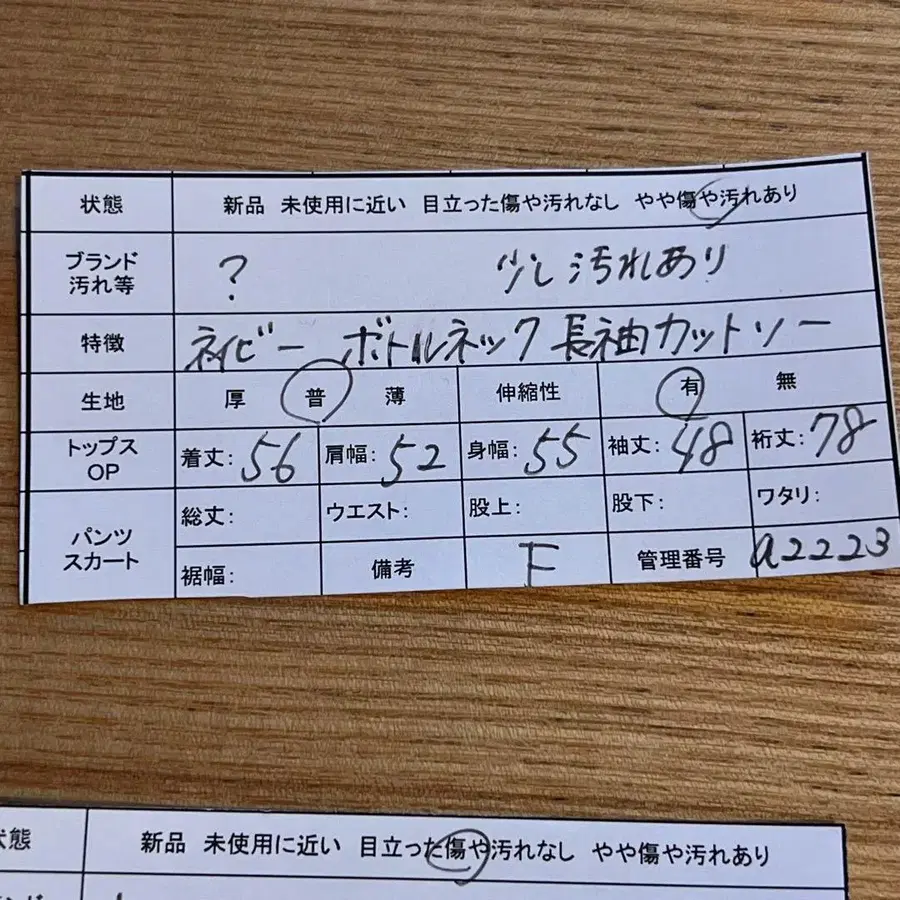 状態 新品 未使用に近い 目立った傷や汚れなし やや傷や汚れあり
ブランド 汚れ等 ? 少し汚れあり
特徴 ネイビー ボトルネック 長袖カットソー
生地 厚 普 薄 伸縮性 有 無
トップス OP 着丈: 56 肩幅: 52 身幅: 55 袖丈: 48 裄丈: 78
パンツ スカート 総丈: ウエスト: 股上: 股下: ワタリ:
裾幅: 備考 F 管理番号 a2223
状態 新品 未使用に近い 目立った傷や汚れなし やや傷や汚れあり